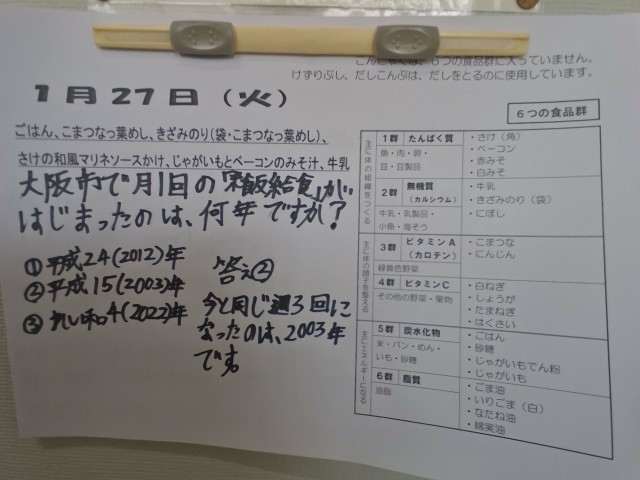 こんにゃくは、6つの食品群に入っていません。
けずりぶし、だしこんぶは、だしをとるのに使用しています。
1月27日（火）
ごはん、こまつなっ葉めし、きざみのり（袋・こまつなっ葉めし）、
さけの和風マリネソースかけ、じゃがいもとベーコンのみそ汁、牛乳
大阪市で月1回の「米飯給食」が
はじまったのは、何年ですか？
①平成24(2012)年
②平成15(2003)年
③れい和4(2022)年
答え②
今と同じ週3回に
なったのは、2003年
です。
6つの食品群
主に体の組織をつくる
1群 たんぱく質
魚・肉・卵・
豆・豆製品
・さけ（角）
・ベーコン
・赤みそ
・白みそ
2群 無機質（カルシウム）
牛乳・乳製品・
小魚・海そう
・牛乳
・きざみのり（袋）
・にぼし
主に体の調子を整える
3群 ビタミンA（カロテン）
緑黄色野菜
・こまつな
・にんじん
4群 ビタミンC
その他の野菜・果物
・白ねぎ
・しょうが
・たまねぎ
・はくさい
主にエネルギーになる
5群 炭水化物
米・パン・めん・
いも・砂糖
・ごはん
・砂糖
・じゃがいもでん粉
・じゃがいも
6群 脂質
油脂
・ごま油
・いりごま（白）
・なたね油
・綿実油